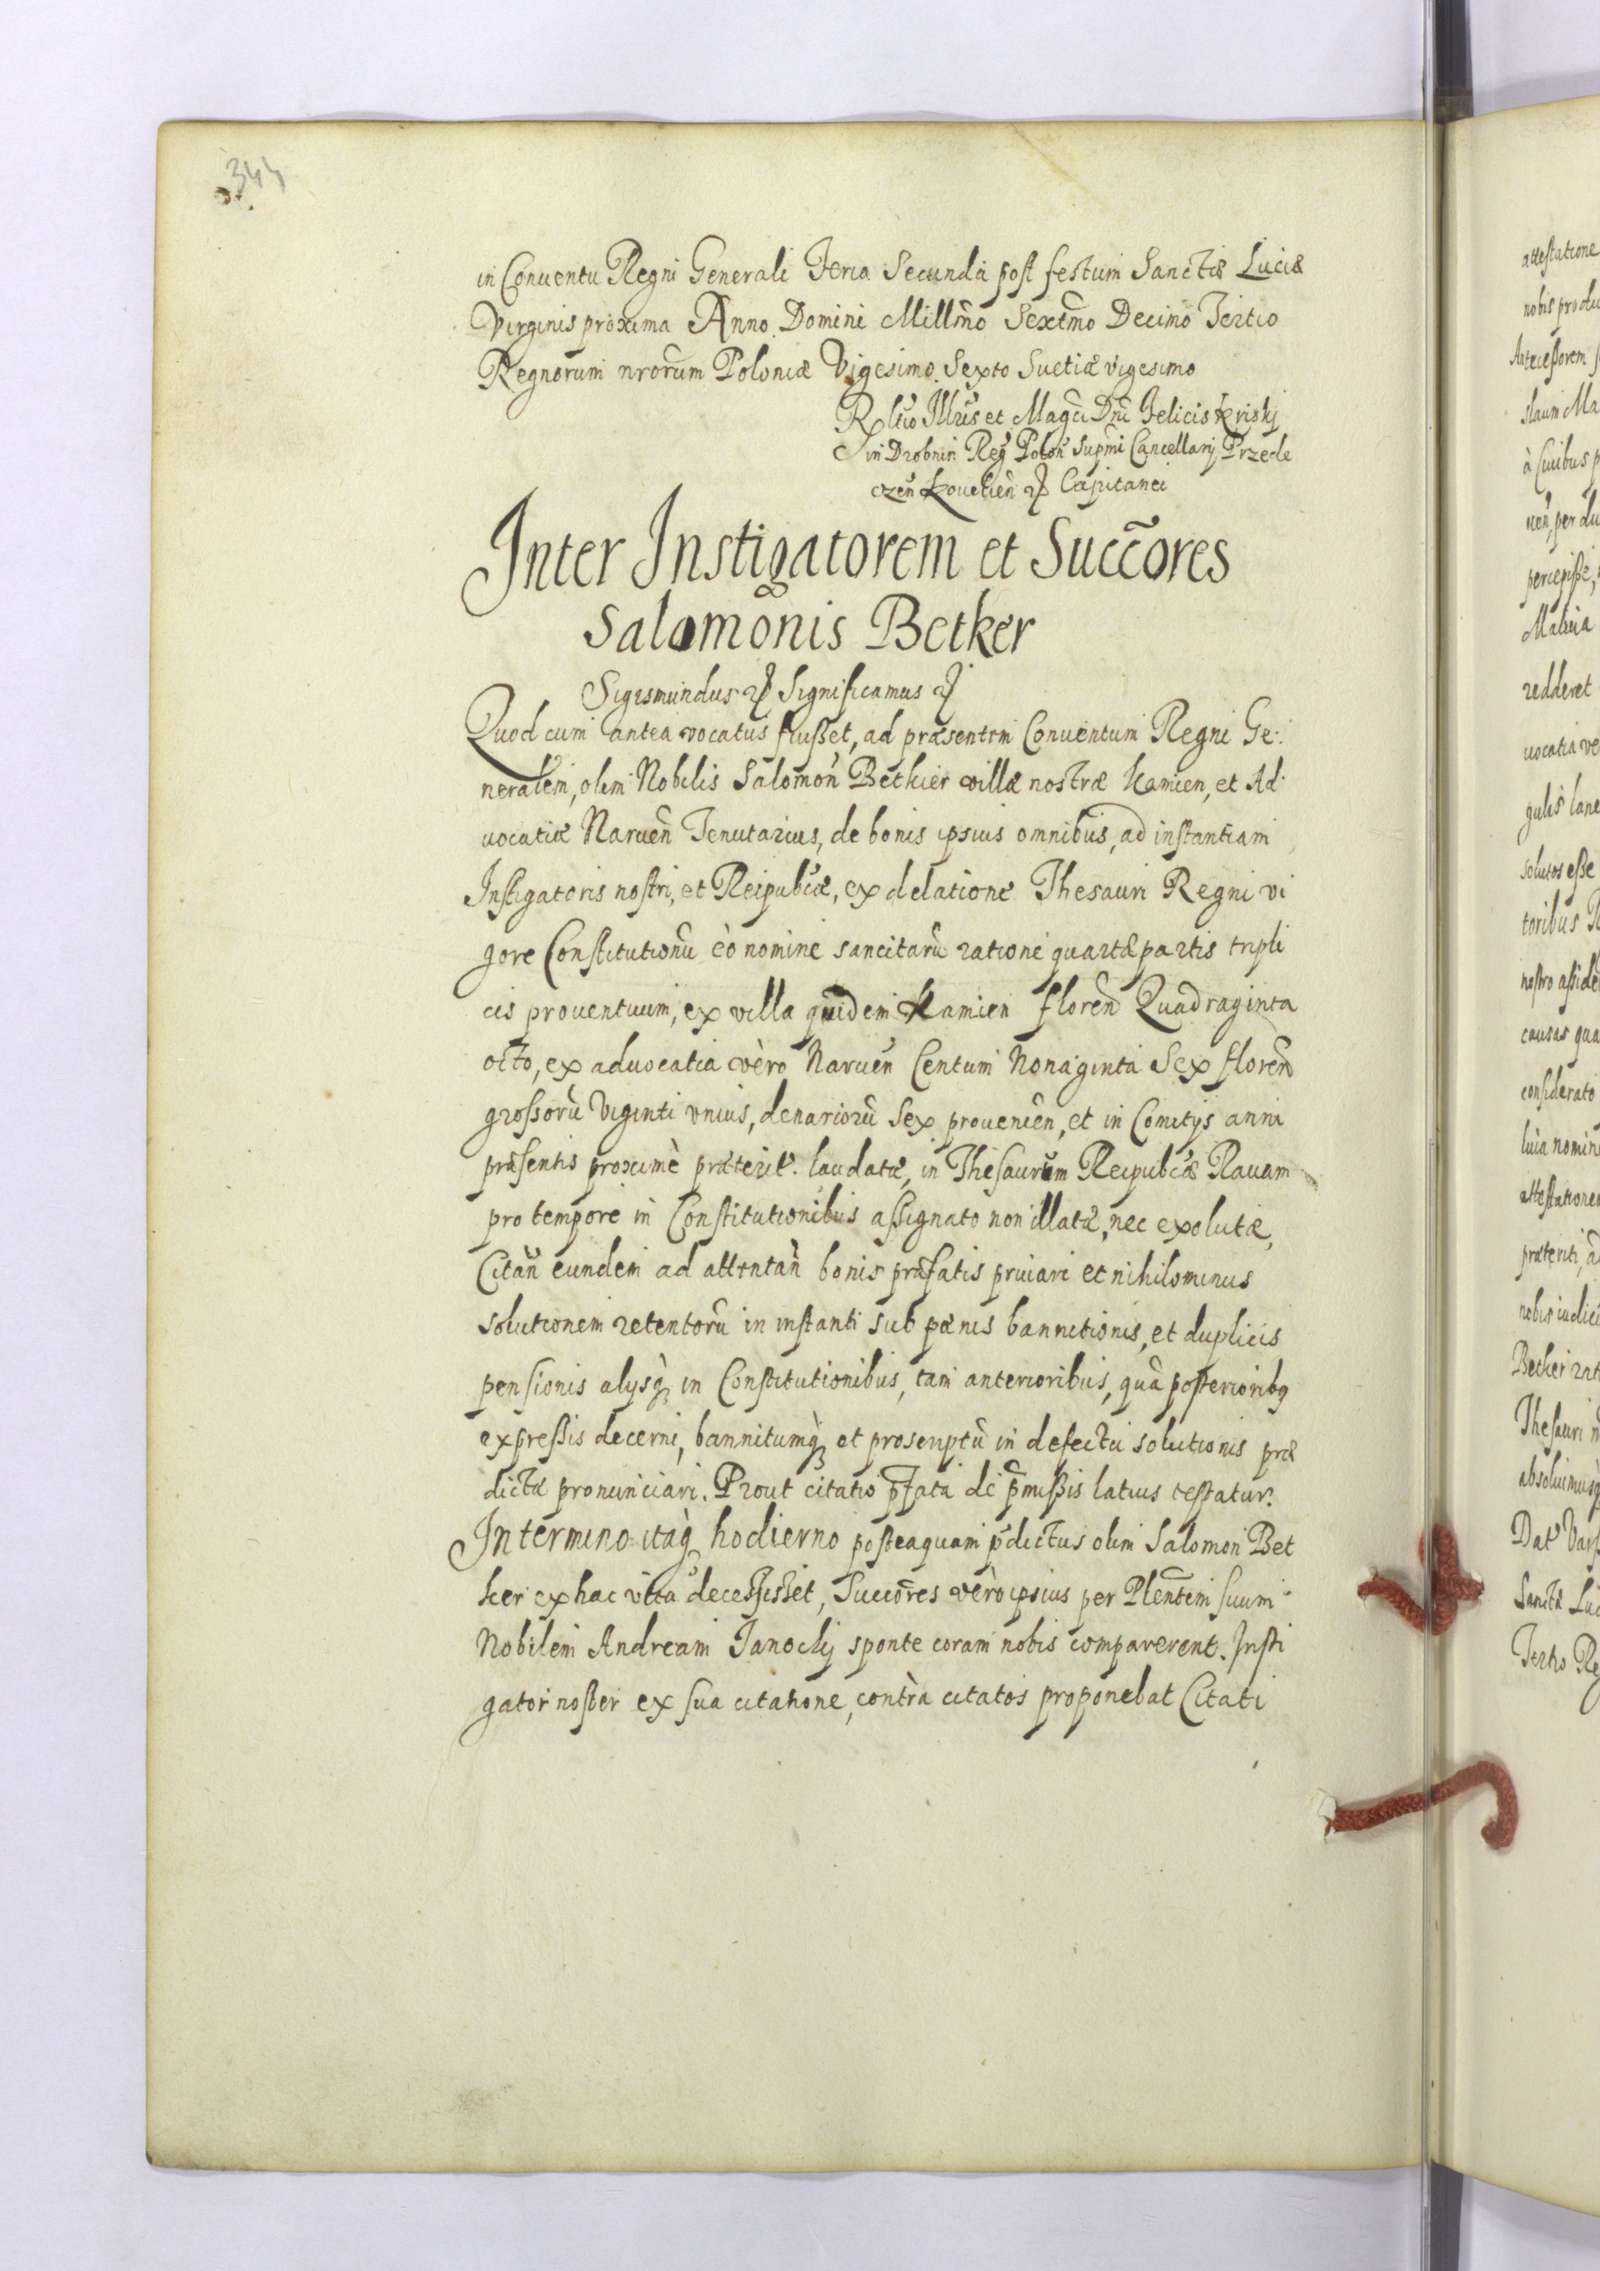 344
in Conuentu Regni Generali Feria Secunda post festum Sanctæ Luciæ
Virginis proxima Anno Domini Millm̃o Sextm̃o Decimo Tertio
Regnorum nrorũm Poloniæ Vigesimo Sexto Suetiæ vigesimo
Rltio Illris et Magci Dni Felicis Kriski
in Drobnin Reg Polon Supmi Cancellarij Przede
czen Kouelien Capitanei
Inter Instigatorem et Succores
Salomonis Betker
Sigismundus Significamus
Quod cum antea vocatus fuisset, ad præsentem Conuentum Regni Ge
neralem, olim Nobilis Salomon Bethier villæ nostræ Kamien, et Ad
uocatiæ Naruen Tenutarius, de bonis ipsius omnibus, ad instantiam
Instigatoris nostri, et Reipubcæ, ex delatione Thesauri Regni vi
gore Constitutionũ eò nomine sancitarũ ratione quartæ partis tripli
cis prouentuum, ex villa quidem Kamien floren Quadraginta
octo, ex aduocatia vèro Naruen Centum Nonaginta Sex floren
grossorũ Viginti vnius, denariorũ Sex prouenien, et in Comitijs anni
præsentis proximè præterit. laudatæ, in Thesaurum Reipubcæ Rauam
pro tempore in Constitutionibus assignato non illatæ, nec exolutæ,
Citan eundem ad attentan bonis præfatis priuari et nihilominus
solutionem retentorũ in instanti sub pænis bannitionis, et duplicis
pensionis alijsq, in Constitutionibus, tam anterioribus, quà posterioribq
expressis decerni, bannitumq, et proscriptũ in defectu solutionis præ
dictæ pronunciari. Prout citatio pfata de pmissis latius testatur.
In termino itaq, hodierno posteaquam pdictus olim Salomon Bet
ker ex hac vita decessisset, Succores vèro ipsius per Plentem suum
Nobilem Andream Janocky sponte coram nobis comparerent. Insti
gator noster ex sua citatione, contrà citatos proponebat Citati